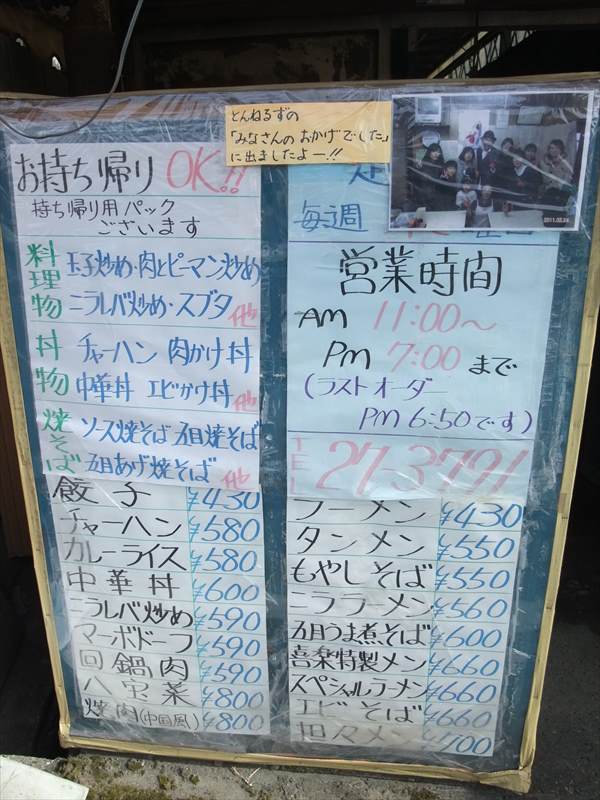 とんねるずの
「みなさんのおかげでした」
に出ましたよー!!
2011.02.24
お持ち帰り OK!!
持ち帰り用パック
ございます
料理物
玉子炒め・肉とピーマン炒め
ニラレバ炒め・スブタ 他
丼物
チャーハン 肉かけ丼
中華丼 エビかけ丼 他
焼そば
ソース焼そば 五目焼そば
五目あげ焼そば 他
餃子 ¥430
チャーハン ¥580
カレーライス ¥580
中華丼 ¥600
ニラレバ炒め ¥590
マーボドーフ ¥590
回鍋肉 ¥590
八宝菜 ¥800
焼肉(中国風) ¥800
毎週
営業時間
AM 11:00〜
PM 7:00 まで
(ラストオーダー
PM 6:50です)
TEL
27-3791
ラーメン ¥430
タンメン ¥550
もやしそば ¥550
ニララーメン ¥560
五目うま煮そば ¥600
喜楽特製メン ¥660
スペシャルラーメン ¥660
エビそば ¥660
担々メン